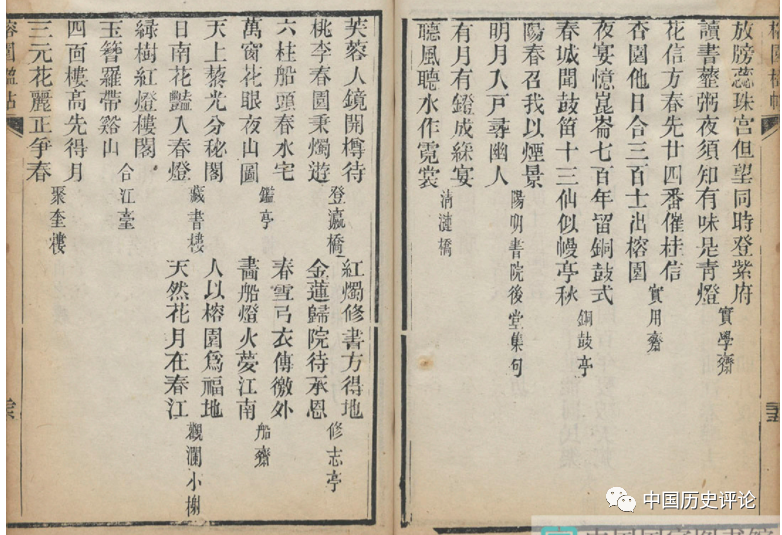 放牓蕊珠宮但望同時登紫府
讀書虀粥夜須知有味是青燈
實學齋
花信方春先廿四番催桂信
杏園他日合三百士出榕園
實用齋
夜宴憶崑崙七百年留銅鼓式
春城聞鼓笛十三仙似幔亭秋
銅鼓亭
陽春召我以煙景
明月入戶尋幽人
陽明書院後堂集句
有月有鐙成綵宴
聽風聽水作霓裳
清漣橋
芙蓉人鏡開樽待
桃李春園秉燭遊
登瀛橋
紅燭修書方得地
金蓮歸院待承恩
修志亭
六柱船頭春水宅
萬窗花眼夜山圖
鑑亭
春雪弓衣傳徼外
畫船燈火夢江南
船齋
天上藜光分秘閣
日南花豔入春燈
藏書樓
人以榕園爲福地
天然花月在春江
觀瀾小榭
綠樹紅燈樓閣
玉簪羅帶谿山
合江臺
四面樓高先得月
三元花麗正爭春
聚奎樓
榕園楹帖
中国历史评论